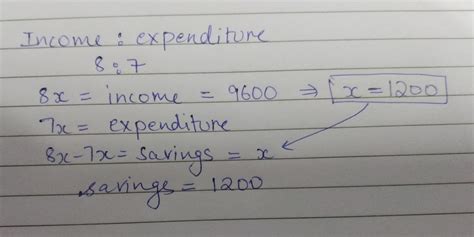 Income : expenditure
8 : 7
8x = income = 9600 ⇒ x = 1200
7x = expenditure
8x - 7x = savings = x
savings = 1200